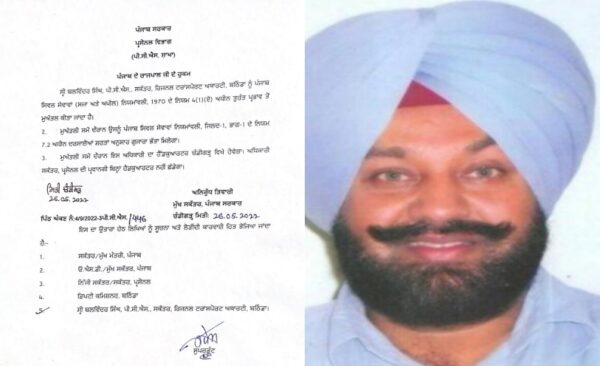 ਪੰਜਾਬ ਸਰਕਾਰ
ਪ੍ਰਸੋਨਲ ਵਿਭਾਗ
(ਪੀ.ਸੀ.ਐਸ. ਸ਼ਾਖਾ)
ਪੰਜਾਬ ਦੇ ਰਾਜਪਾਲ ਜੀ ਦੇ ਹੁਕਮ
ਸ੍ਰੀ ਬਲਵਿੰਦਰ ਸਿੰਘ, ਪੀ.ਸੀ.ਐਸ., ਸਕੱਤਰ, ਰਿਜਨਲ ਟਰਾਂਸਪੋਰਟ ਅਥਾਰਟੀ, ਬਠਿੰਡਾ ਨੂੰ ਪੰਜਾਬ
ਸਿਵਲ ਸੇਵਾਵਾਂ (ਸਜਾ ਅਤੇ ਅਪੀਲ) ਨਿਯਮਾਂਵਲੀ, 1970 ਦੇ ਨਿਯਮ 4(1)(ਏ) ਅਧੀਨ ਤੁਰੰਤ ਪ੍ਰਭਾਵ ਤੋਂ
ਮੁਅੱਤਲ ਕੀਤਾ ਜਾਂਦਾ ਹੈ।
2. ਮੁਅੱਤਲੀ ਸਮੇਂ ਦੌਰਾਨ ਉਸਨੂੰ ਪੰਜਾਬ ਸਿਵਲ ਸੇਵਾਵਾਂ ਨਿਯਮਾਂਵਲੀ, ਜਿਲਦ-1, ਭਾਗ-1 ਦੇ ਨਿਯਮ
7.2 ਅਧੀਨ ਦਰਸਾਈਆਂ ਸ਼ਰਤਾਂ ਅਨੁਸਾਰ ਗੁਜਾਰਾ ਭੱਤਾ ਮਿਲੇਗਾ।
3. ਮੁਅੱਤਲੀ ਸਮੇਂ ਦੌਰਾਨ ਇਸ ਅਧਿਕਾਰੀ ਦਾ ਹੈਡਕੁਆਰਟਰ ਚੰਡੀਗੜ੍ਹ ਵਿਖੇ ਹੋਵੇਗਾ। ਅਧਿਕਾਰੀ
ਸਕੱਤਰ, ਪ੍ਰਸੋਨਲ ਦੀ ਪ੍ਰਵਾਨਗੀ ਬਿਨ੍ਹਾਂ ਹੈਡਕੁਆਰਟਰ ਨਹੀਂ ਛੱਡੇਗਾ।
ਮਿਤੀ ਚੰਡੀਗੜ੍ਹ
26.05.2022
ਅਨਿਰੁੱਧ ਤਿਵਾਰੀ
ਮੁੱਖ ਸਕੱਤਰ, ਪੰਜਾਬ ਸਰਕਾਰ
ਪਿੱਠ ਅੰਕਣ ਨੰ:4/9/2022-3ਪੀ.ਸੀ.ਐਸ/446 ਚੰਡੀਗੜ੍ਹ ਮਿਤੀ: 26.05.2022
ਇਸ ਦਾ ਉਤਾਰਾ ਹੇਠ ਲਿਖਿਆਂ ਨੂੰ ਸੂਚਨਾ ਅਤੇ ਲੋੜੀਂਦੀ ਕਾਰਵਾਈ ਹਿਤ ਭੇਜਿਆ ਜਾਂਦਾ
ਹੈ:-
1. ਸਕੱਤਰ/ਮੁੱਖ ਮੰਤਰੀ, ਪੰਜਾਬ
2. ਓ.ਐਸ.ਡੀ./ਮੁੱਖ ਸਕੱਤਰ, ਪੰਜਾਬ
3. ਨਿੱਜੀ ਸਕੱਤਰ/ਸਕੱਤਰ, ਪ੍ਰਸੋਨਲ
4. ਡਿਪਟੀ ਕਮਿਸ਼ਨਰ, ਬਠਿੰਡਾ
5 ਸ੍ਰੀ ਬਲਵਿੰਦਰ ਸਿੰਘ, ਪੀ.ਸੀ.ਐਸ., ਸਕੱਤਰ, ਰਿਜਨਲ ਟਰਾਂਸਪੋਰਟ ਅਥਾਰਟੀ, ਬਠਿੰਡਾ।
ਸੁਪਰਡੰਟ